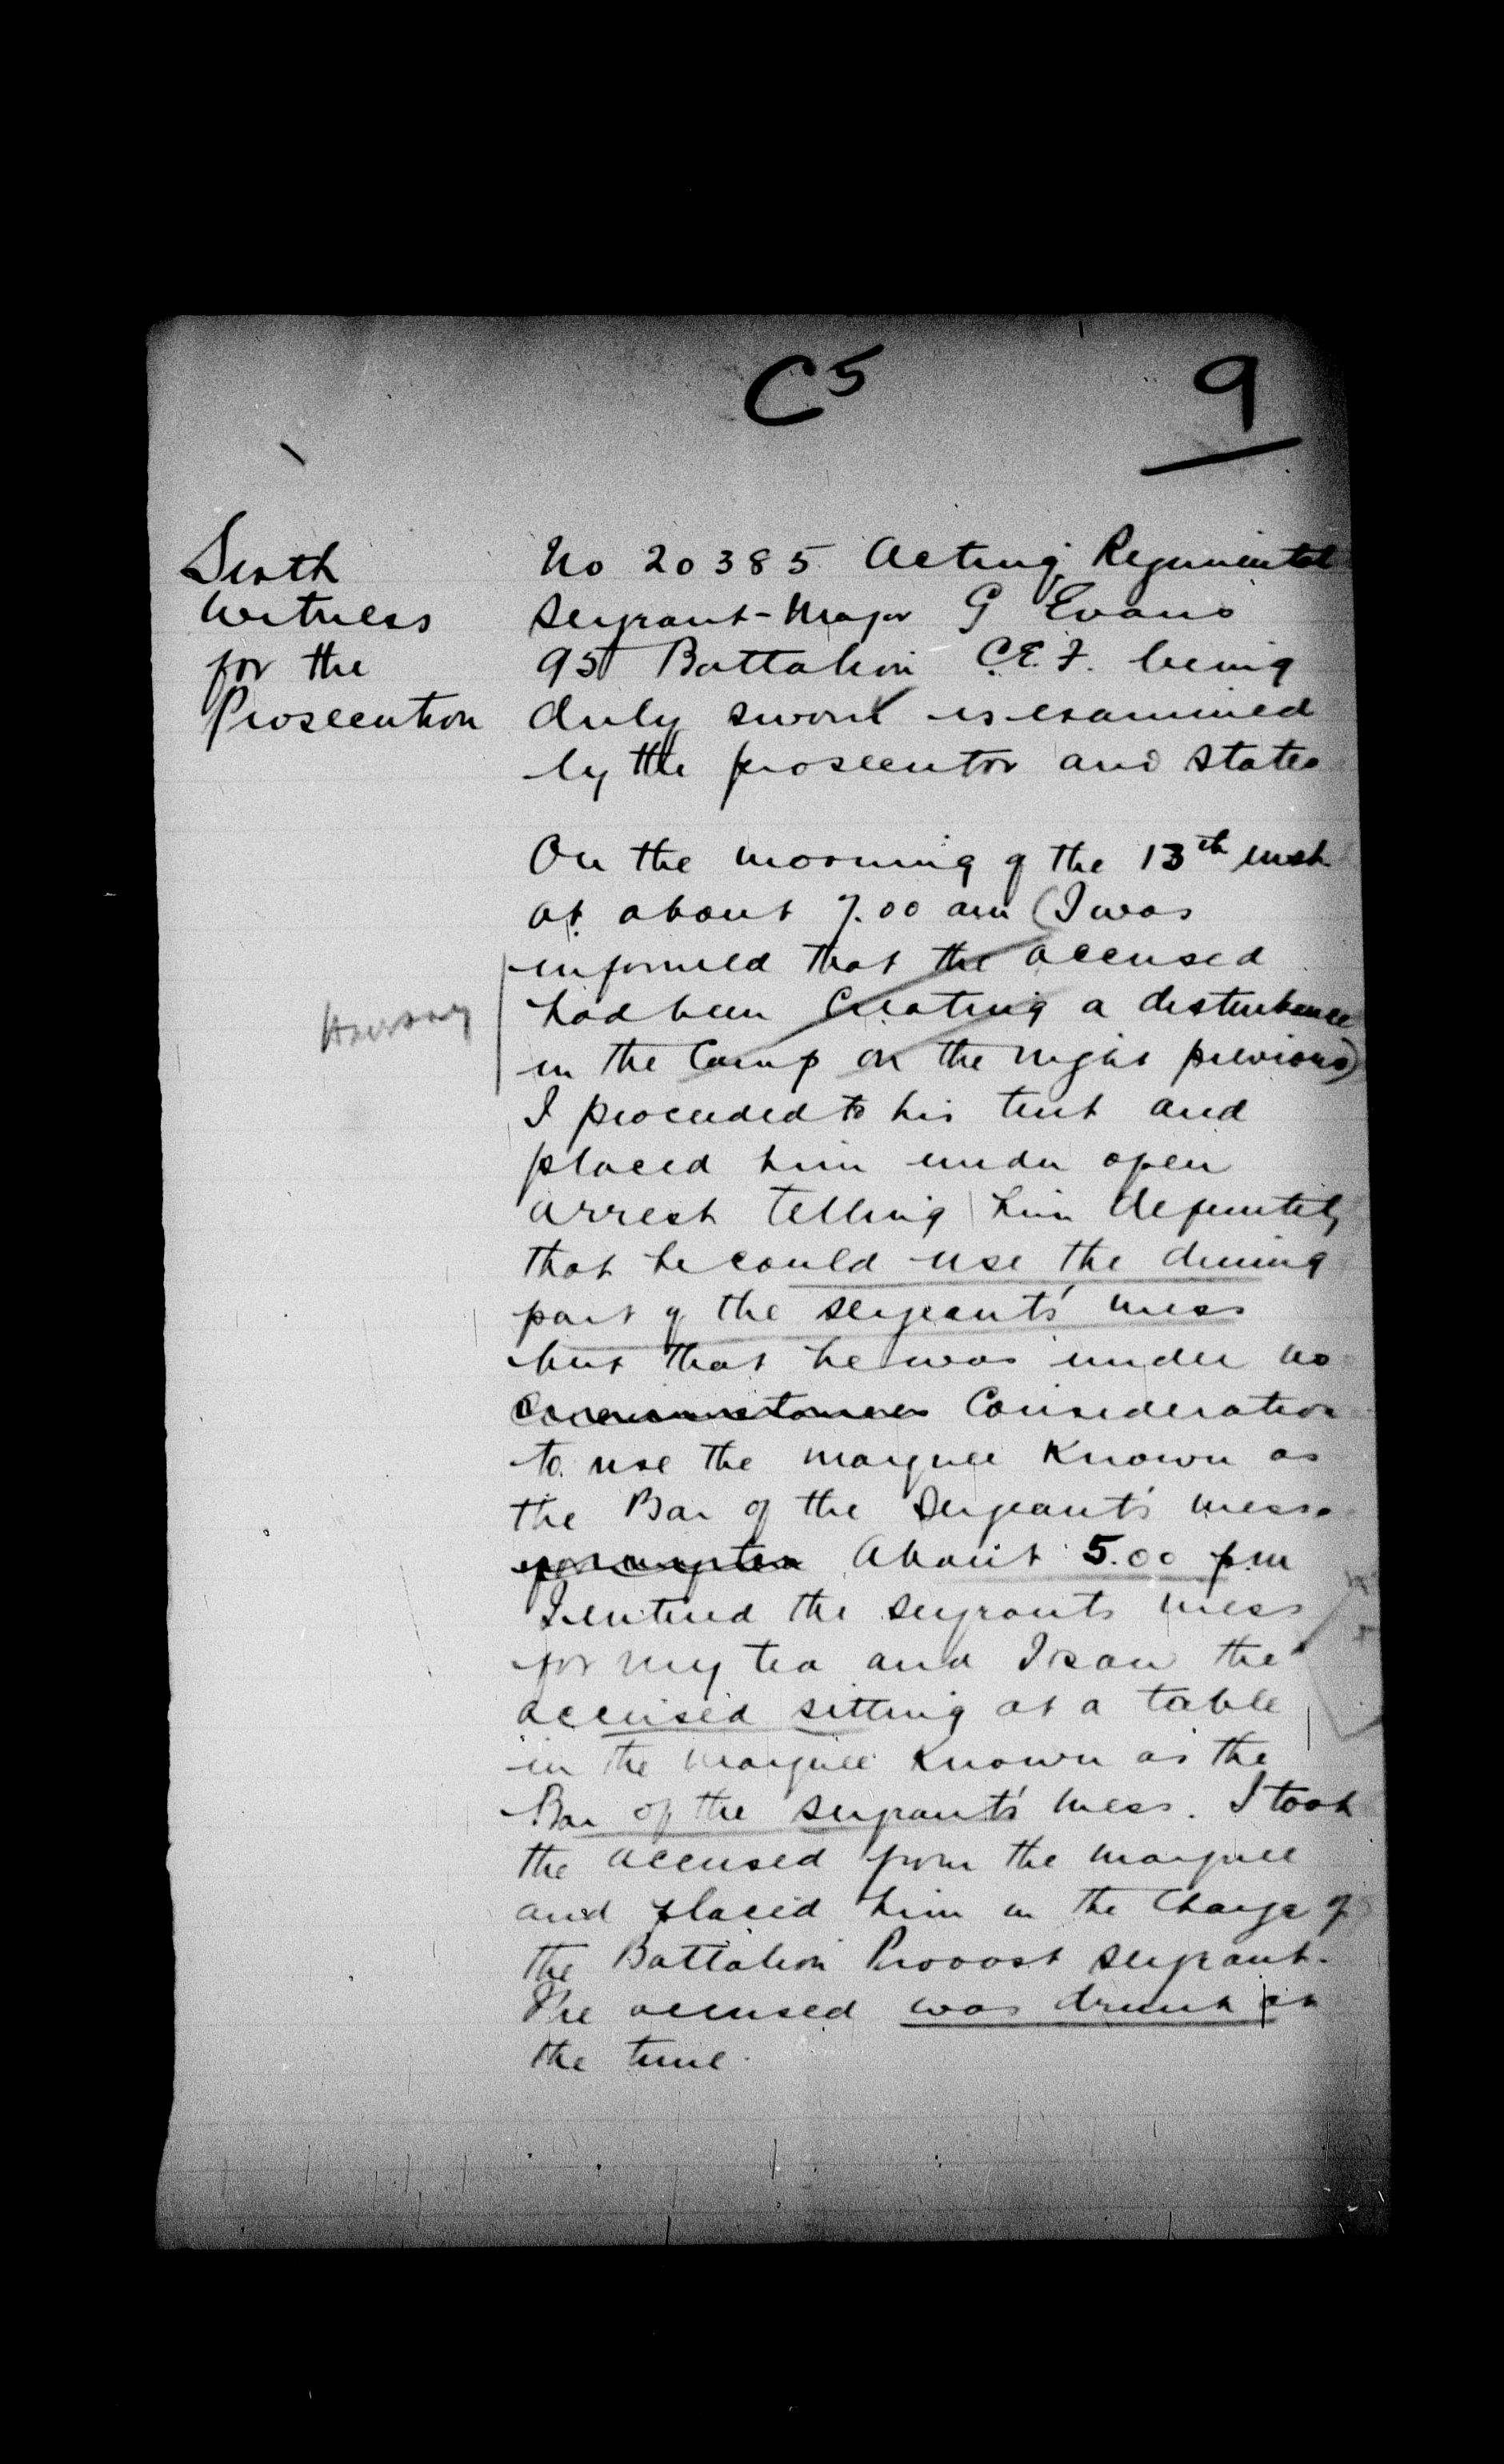 C5
9
Sixth
Witness
for the
Prosecution
No 20385 Acting Regimental
Sergeant-Major G Evans
95 Battalion C.E.F. being
duly sworn is examined
by the prosecutor and states
On the morning of the 13th inst
at about 7.00 am (I was
informed that the accused
had been Creating a disturbance
in the Camp on the night previous)
Hearsay
I proceeded to his tent and
placed him under open
arrest telling him definitely
that he could use the dining
part of the sergeants' mess
but that he was under no
Circumstances Consideration
to use the marquee Known as
the Bar of the Sergeants' mess.
About 5.00 pm
I entered the sergeants mess
for my tea and I saw the
accused sitting at a table
in the marquee Known as the
Bar of the sergeants' mess. I took
the accused from the marquee
and placed him in the Charge of
the Battalion Provost Sergeant.
The accused was drunk at
the time.